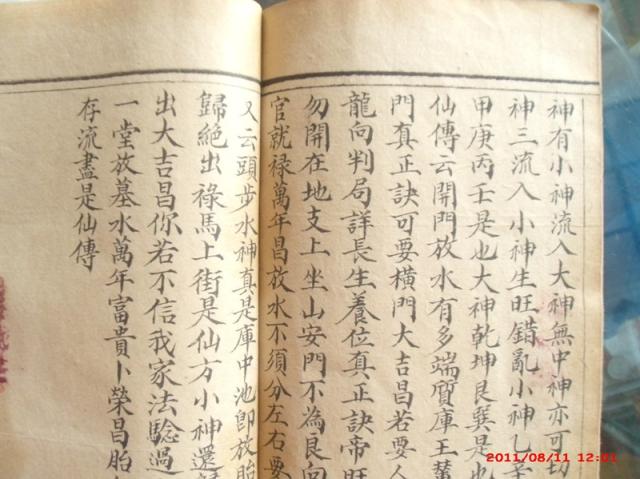 神有小神流入大神無中神亦可切
神三流入小神生旺錯亂小神乙辛
甲庚丙壬是也大神乾坤艮巽是也
仙傳云開門放水有多端質庫王
門真正訣可要橫門大吉昌若要人
龍向判局詳長生養位真正訣帝旺
勿開在地支上坐山安門不為良向
官就祿萬年昌放水不須分左右要
又云頭步水神真是庫中池卽放胎
歸絕出祿馬上街是仙方小神還
出大吉昌你若不信我家法騐過
一堂放墓水萬年富貴卜榮昌胎
存流盡是仙傳
2011/08/11 12:01